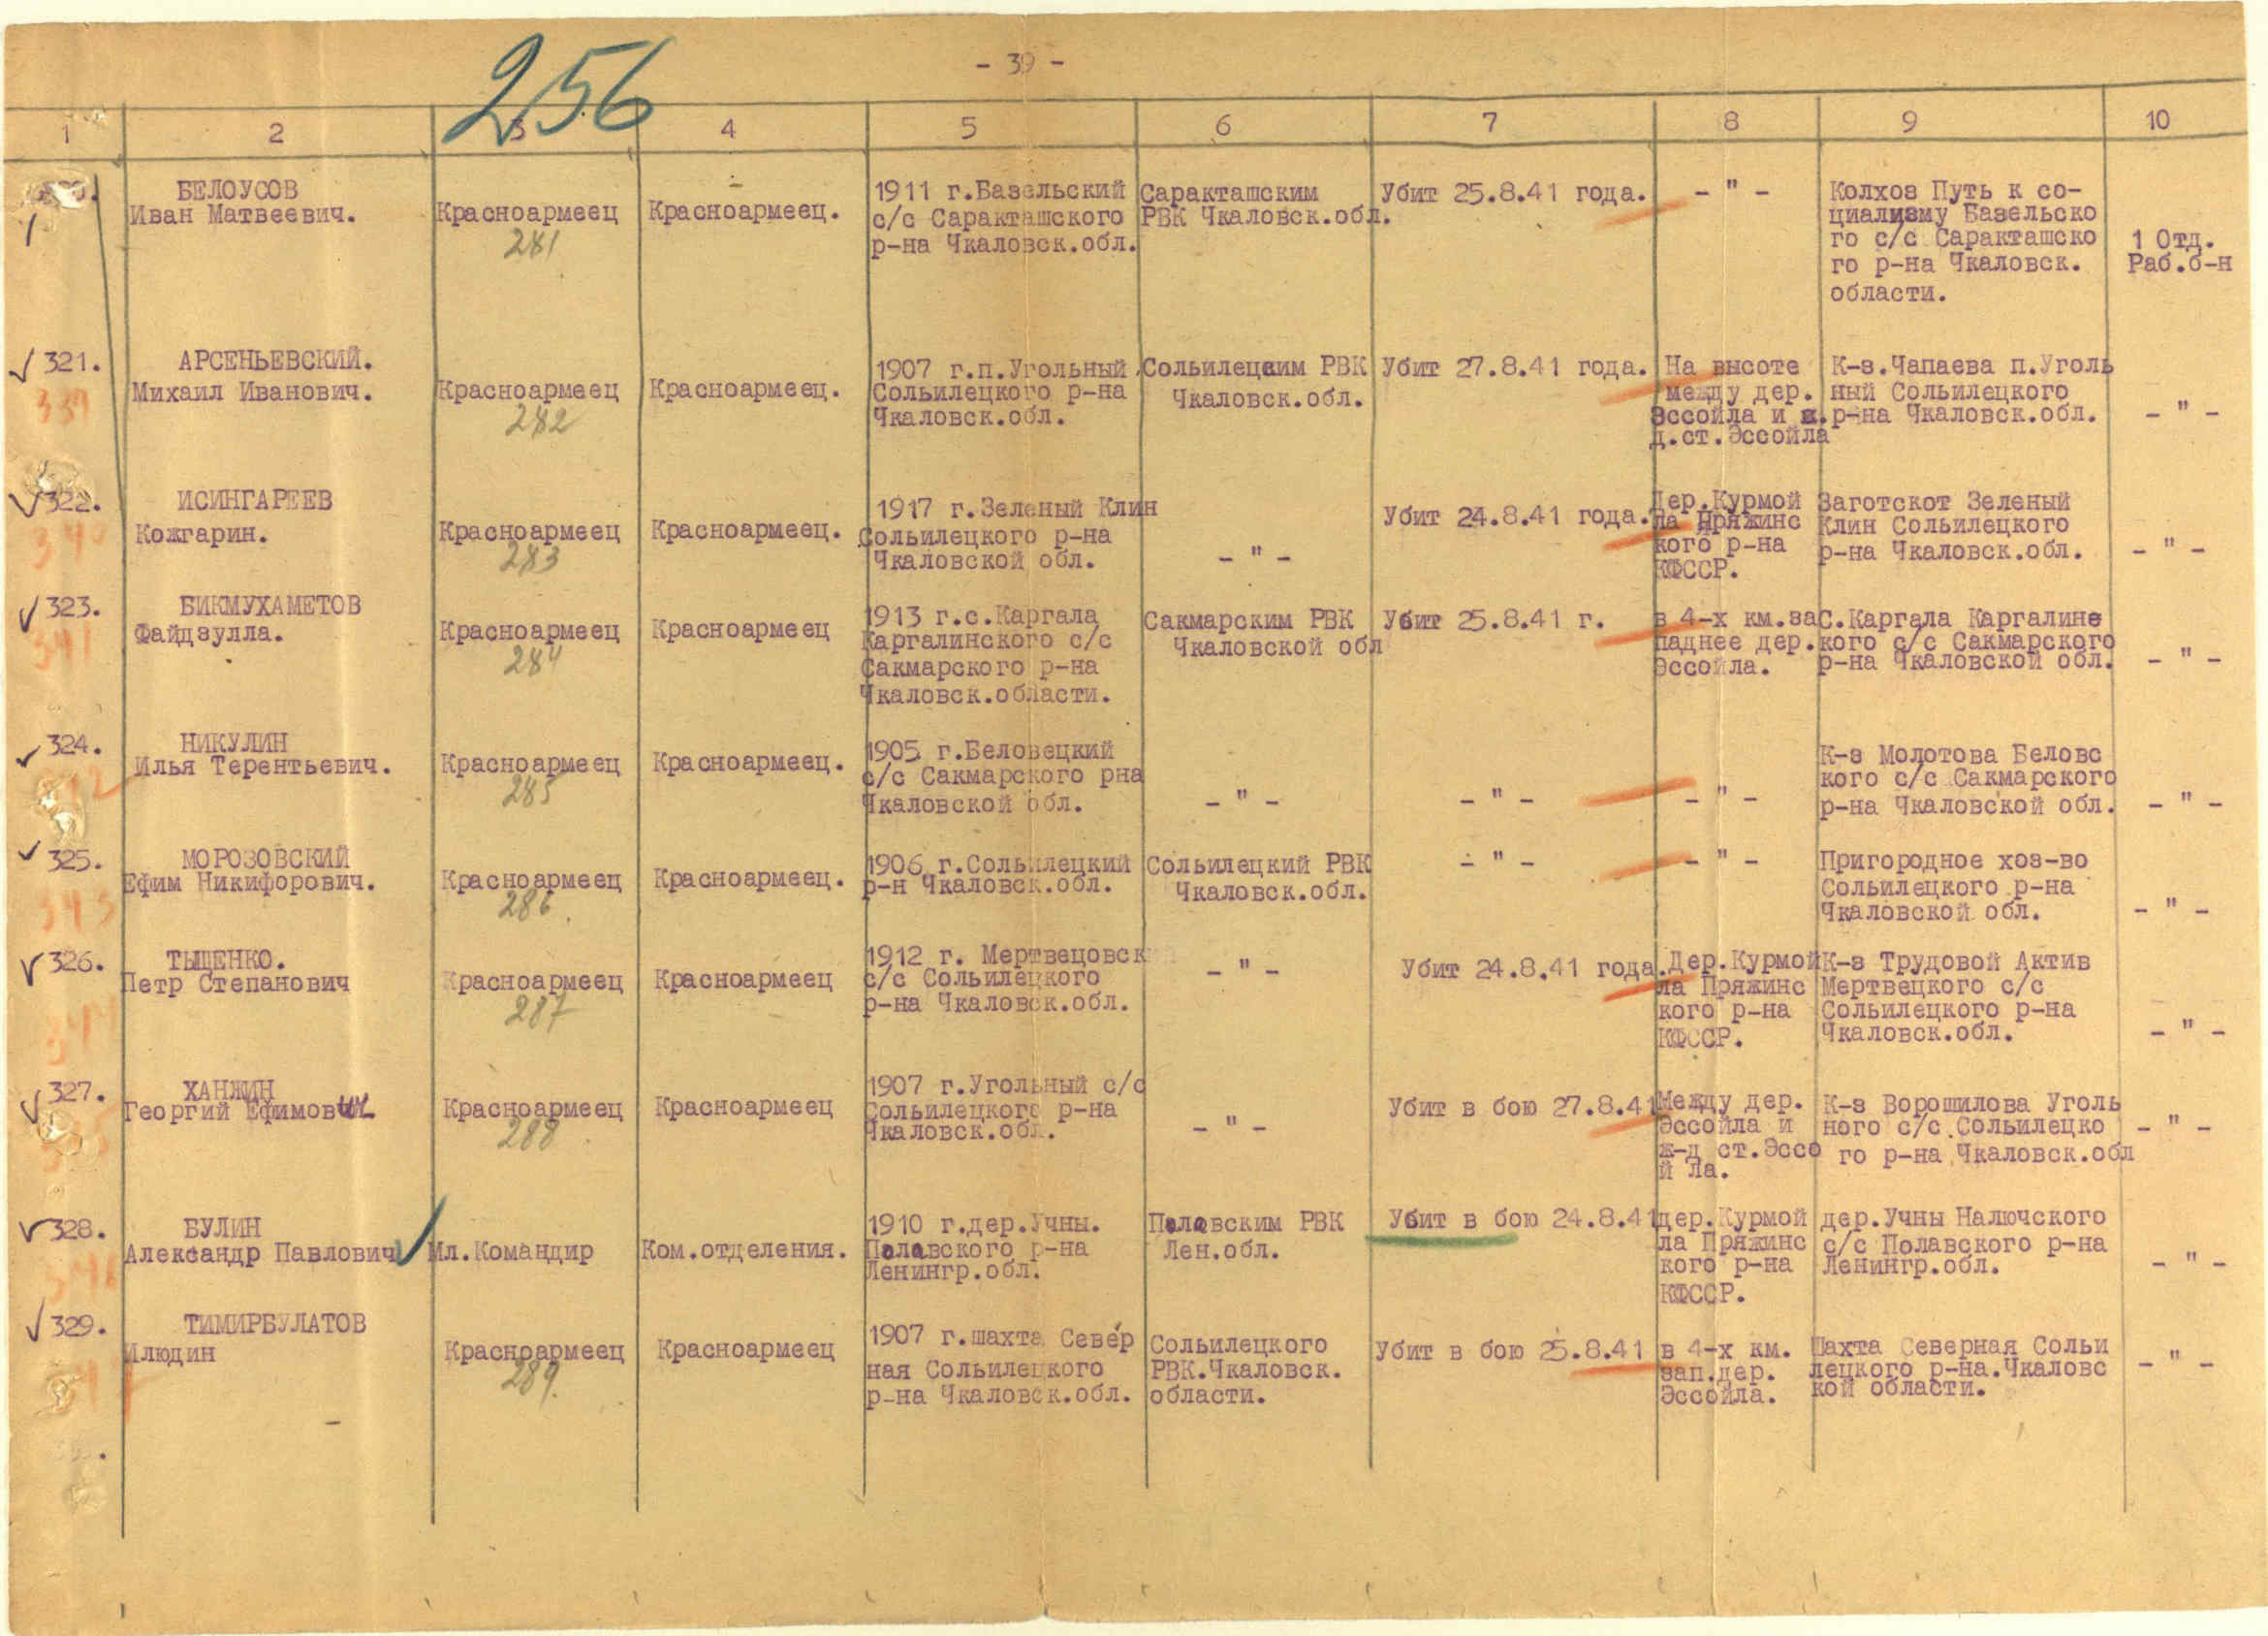 256
- 39 -
1 2 3 4 5 6 7 8 9 10
БЕЛОУСОВ
Иван Матвеевич.
Красноармеец
281
Красноармеец.
1911 г.Базельский
с/с Саракташского
р-на Чкаловск.обл.
Саракташским
РВК Чкаловск.обл.
Убит 25.8.41 года.
- " -
Колхоз Путь к со-
циализму Базельско
го с/с Саракташско
го р-на Чкаловск.
области.
1 Отд.
Раб.б-н
321.
339
АРСЕНЬЕВСКИЙ.
Михаил Иванович.
Красноармеец
282
Красноармеец.
1907 г.п.Угольный
Сольилецкого р-на
Чкаловск.обл.
Сольилецким РВК
Чкаловск.обл.
Убит 27.8.41 года.
На высоте
между дер.
Эссойла и ж.
д.ст.Эссойла
К-з.Чапаева п.Уголь
ный Сольилецкого
р-на Чкаловск.обл.
- " -
322.
340
ИСИНГАРЕЕВ
Кожгарин.
Красноармеец
283
Красноармеец.
1917 г.Зеленый Клин
Сольилецкого р-на
Чкаловской обл.
- " -
Убит 24.8.41 года.
Дер.Курмой
ла Пряжинс
кого р-на
КФССР.
Заготскот Зеленый
Клин Сольилецкого
р-на Чкаловск.обл.
- " -
323.
341
БИКМУХАМЕТОВ
Файдзулла.
Красноармеец
284
Красноармеец
1913 г.с.Каргала
Каргалинского с/с
Сакмарского р-на
Чкаловск.области.
Сакмарским РВК
Чкаловской обл
Убит 25.8.41 г.
в 4-х км.за
паднее дер.
Эссойла.
С.Каргала Каргалине
кого с/с Сакмарского
р-на Чкаловской обл.
- " -
324.
НИКУЛИН
Илья Терентьевич.
Красноармеец
285
Красноармеец.
1905 г.Беловецкий
с/с Сакмарского рна
Чкаловской обл.
- " -
- " -
- " -
К-з Молотова Беловс
кого с/с Сакмарского
р-на Чкаловской обл.
- " -
325.
343
МОРОЗОВСКИЙ
Ефим Никифорович.
Красноармеец
286
Красноармеец.
1906 г.Сольилецкий
р-н Чкаловск.обл.
Сольилецкий РВК
Чкаловск.обл.
- " -
- " -
Пригородное хоз-во
Сольилецкого р-на
Чкаловской обл.
- " -
326.
344
ТЫЩЕНКО.
Петр Степанович
Красноармеец
287
Красноармеец
1912 г. Мертвецовск
с/с Сольилецкого
р-на Чкаловск.обл.
- " -
Убит 24.8.41 года.
Дер.Курмой
ла Пряжинс
кого р-на
КФССР.
К-з Трудовой Актив
Мертвецкого с/с
Сольилецкого р-на
Чкаловск.обл.
- " -
327.
ХАНЖИН
Георгий Ефимович
Красноармеец
288
Красноармеец
1907 г.Угольный с/с
Сольилецкого р-на
Чкаловск.обл.
- " -
Убит в бою 27.8.41
Между дер.
Эссойла и
ж-д ст.Эссо
й ла.
К-з Ворошилова Уголь
ного с/с Сольилецко
го р-на Чкаловск.обл
- " -
328.
346
БУЛИН
Александр Павлович
Мл.Командир
Ком.отделения.
1910 г.дер.Учны.
Полавского р-на
Ленингр.обл.
Полавским РВК
Лен.обл.
Убит в бою 24.8.41
дер.Курмой
ла Пряжинс
кого р-на
КФССР.
дер.Учны Налючского
с/с Полавского р-на
Ленингр.обл.
- " -
329.
ТИМИРБУЛАТОВ
Илюдин
Красноармеец
289.
Красноармеец
1907 г.шахта Север
ная Сольилецкого
р-на Чкаловск.обл.
Сольилецкого
РВК.Чкаловск.
области.
Убит в бою 25.8.41
в 4-х км.
зап.дер.
Эссойла.
Шахта Северная Сольи
лецкого р-на.Чкаловс
кой области.
- " -